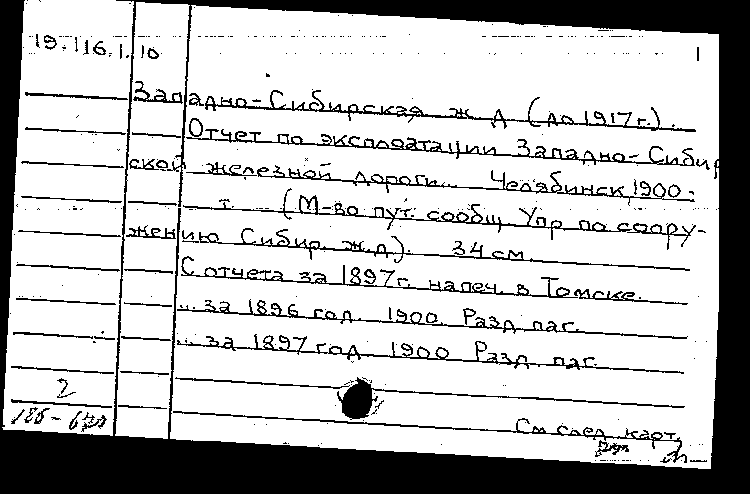 19.116.1.10
1
Западно-Сибирская ж. д. (до 1917 г.).
Отчет по эксплоатации Западно-Сибир
ской железной дороги... Челябинск, 1900-
т. (М-во пут. сообщ. Упр. по соору-
жению Сибир. ж.д.). 34 см.
С отчета за 1897 г. напеч. в Томске.
... за 1896 год. 1900. Разд. паг.
... за 1897 год. 1900. Разд. паг.
2
См. след. карт.